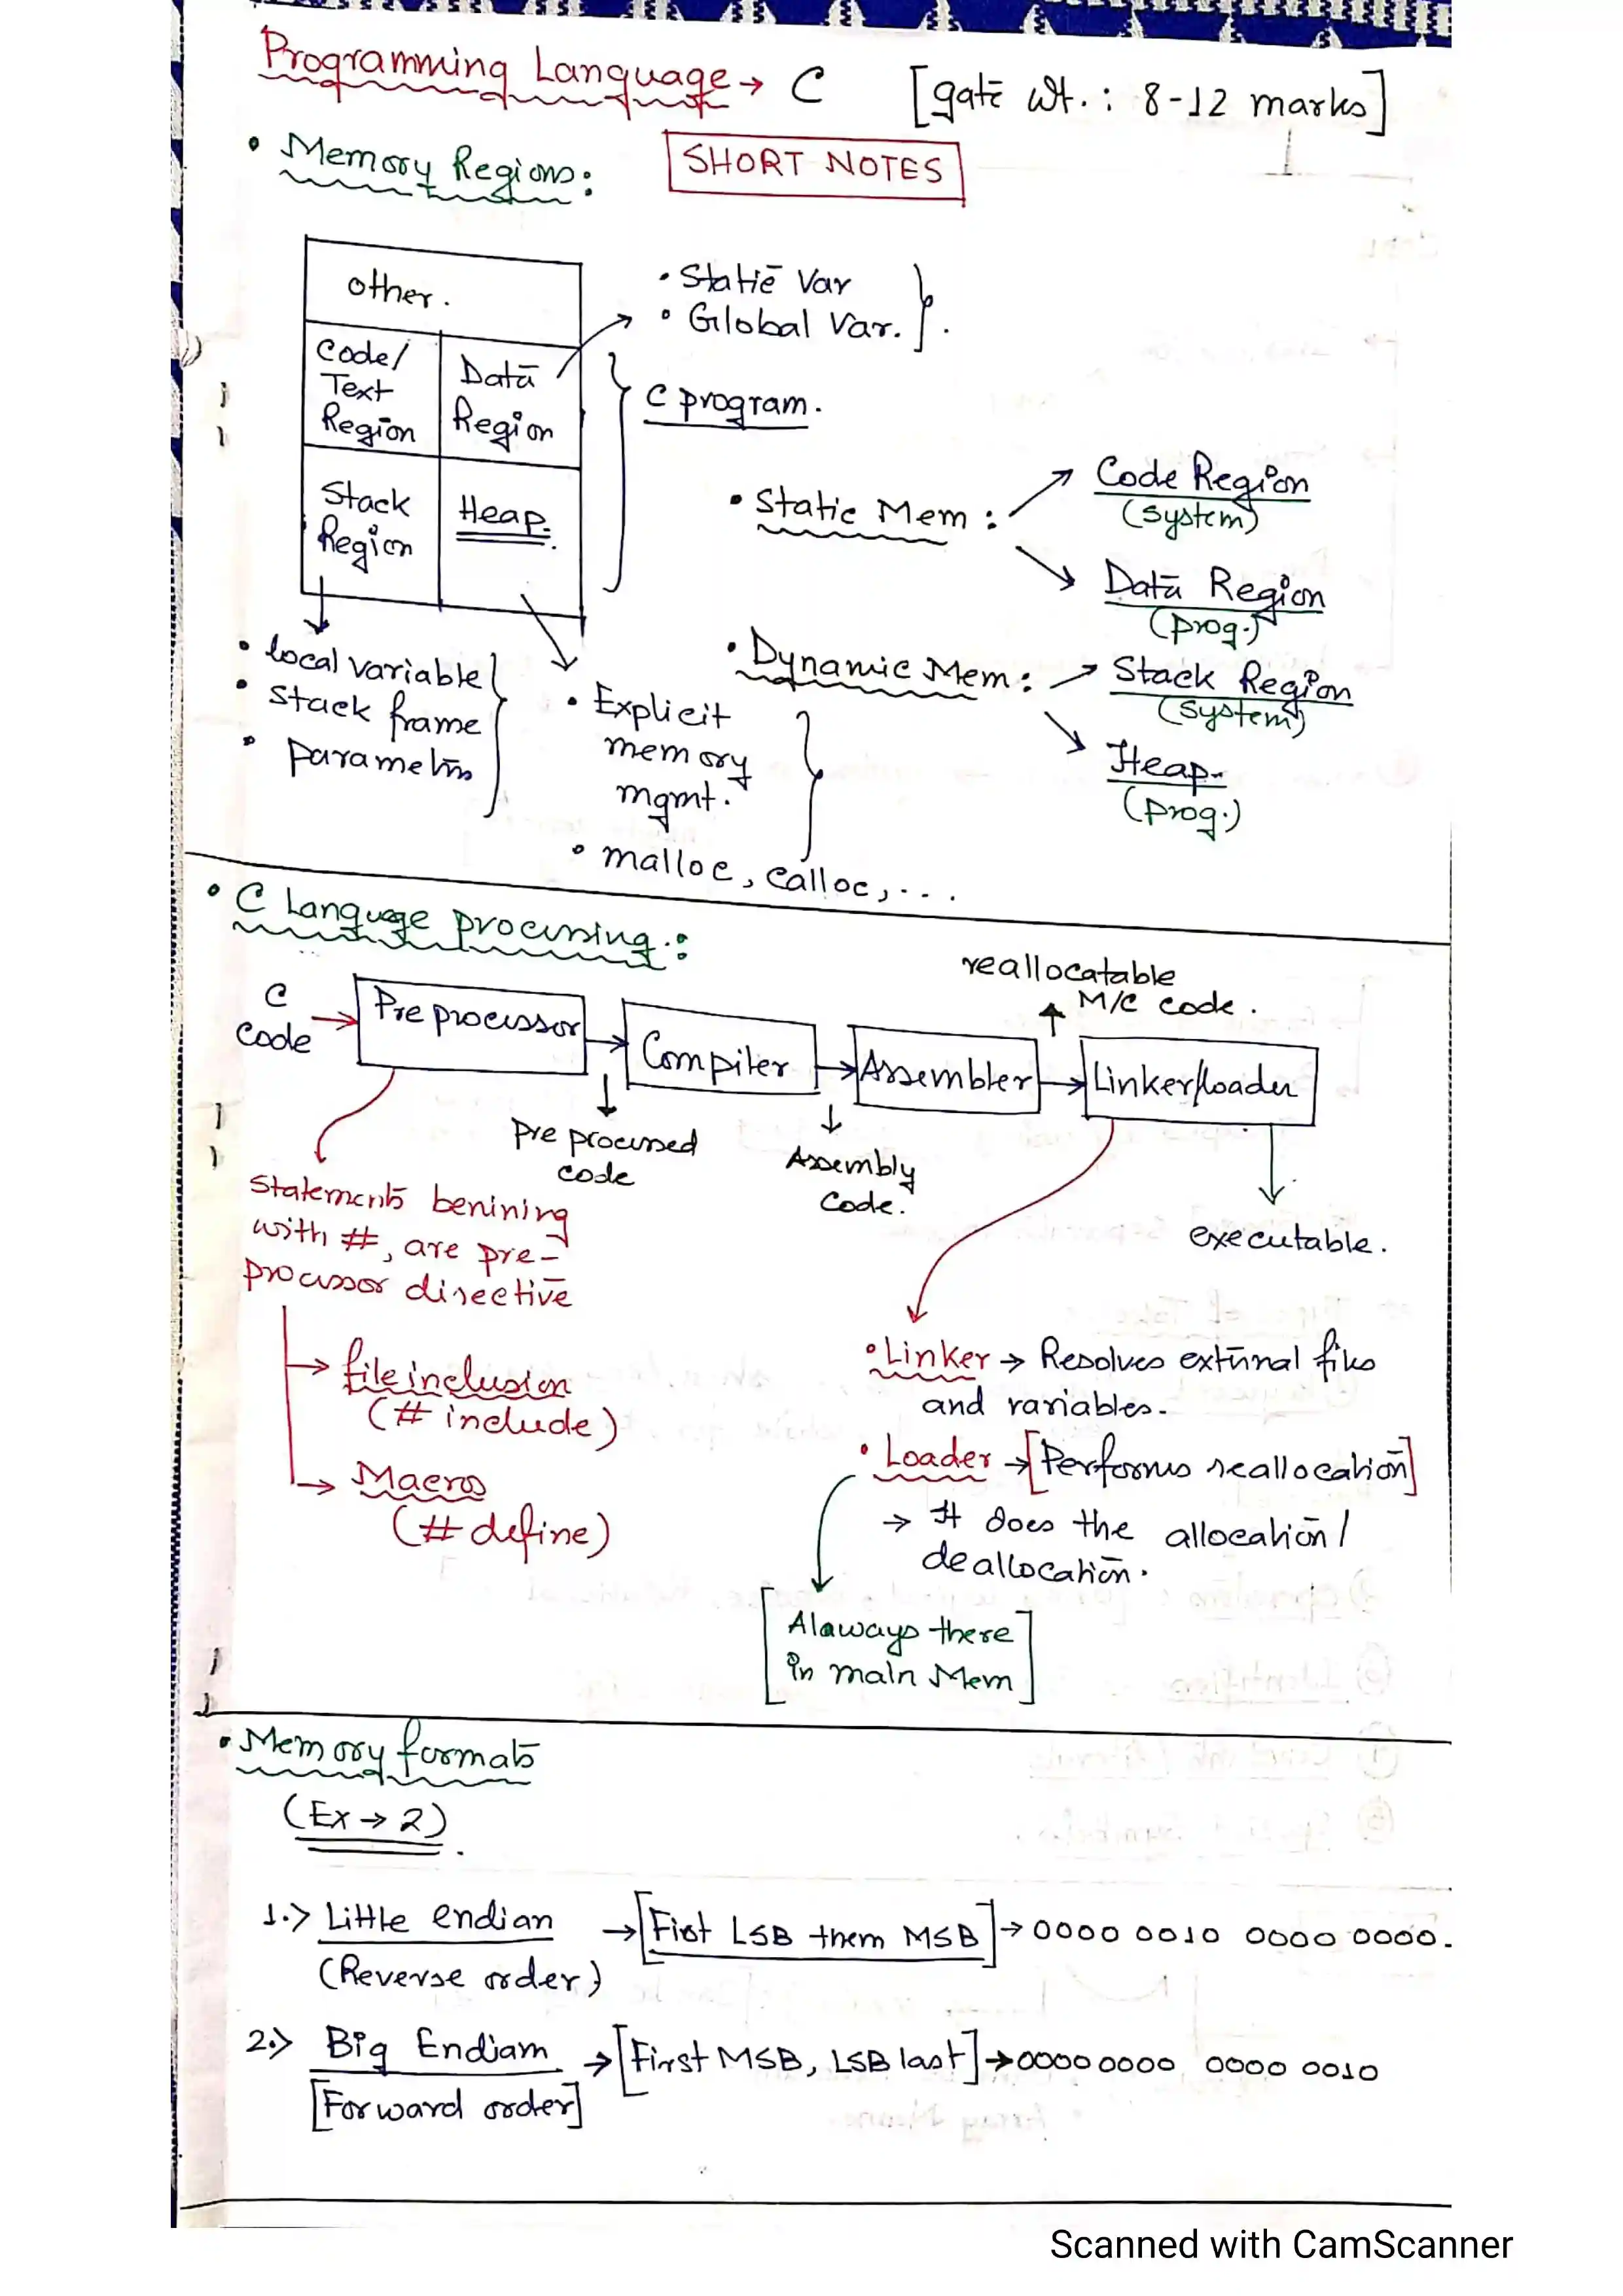 Programming Language → C [gate wt. : 8-12 marks]
• Memory Regions :
SHORT NOTES
other.
Code/
Text
Region
Data
Region
Stack
Region
Heap.
• Static Var
• Global Var.
C program.
• Static Mem :
Code Region
(system)
Data Region
(prog.)
• Dynamic Mem :
Stack Region
(system)
Heap
(prog.)
• local variable
• stack frame
• parameters
• Explicit
memory
mgmt.
• malloc, calloc, ...
• C Language processing :
C
Code
Preprocessor
Compiler
Assembler
Linker/loader
reallocatable
M/C code.
Pre processed
code
Assembly
Code.
executable.
Statements benining
with #, are pre-
processor directive
→ file inclusion
(# include)
→ Macros
(# define)
• Linker → Resolves external files
and variables.
• Loader → [Performs reallocation]
→ It does the allocation/
deallocation.
[Alaways there
in main Mem]
• Memory formats
(Ex → 2).
1.> Little endian → [Fist LSB them MSB] → 0000 0010 0000 0000.
(Reverse order)
2.> Big Endiam → [First MSB, LSB last] → 0000 0000 0000 0010
[Forward order]
Scanned with CamScanner